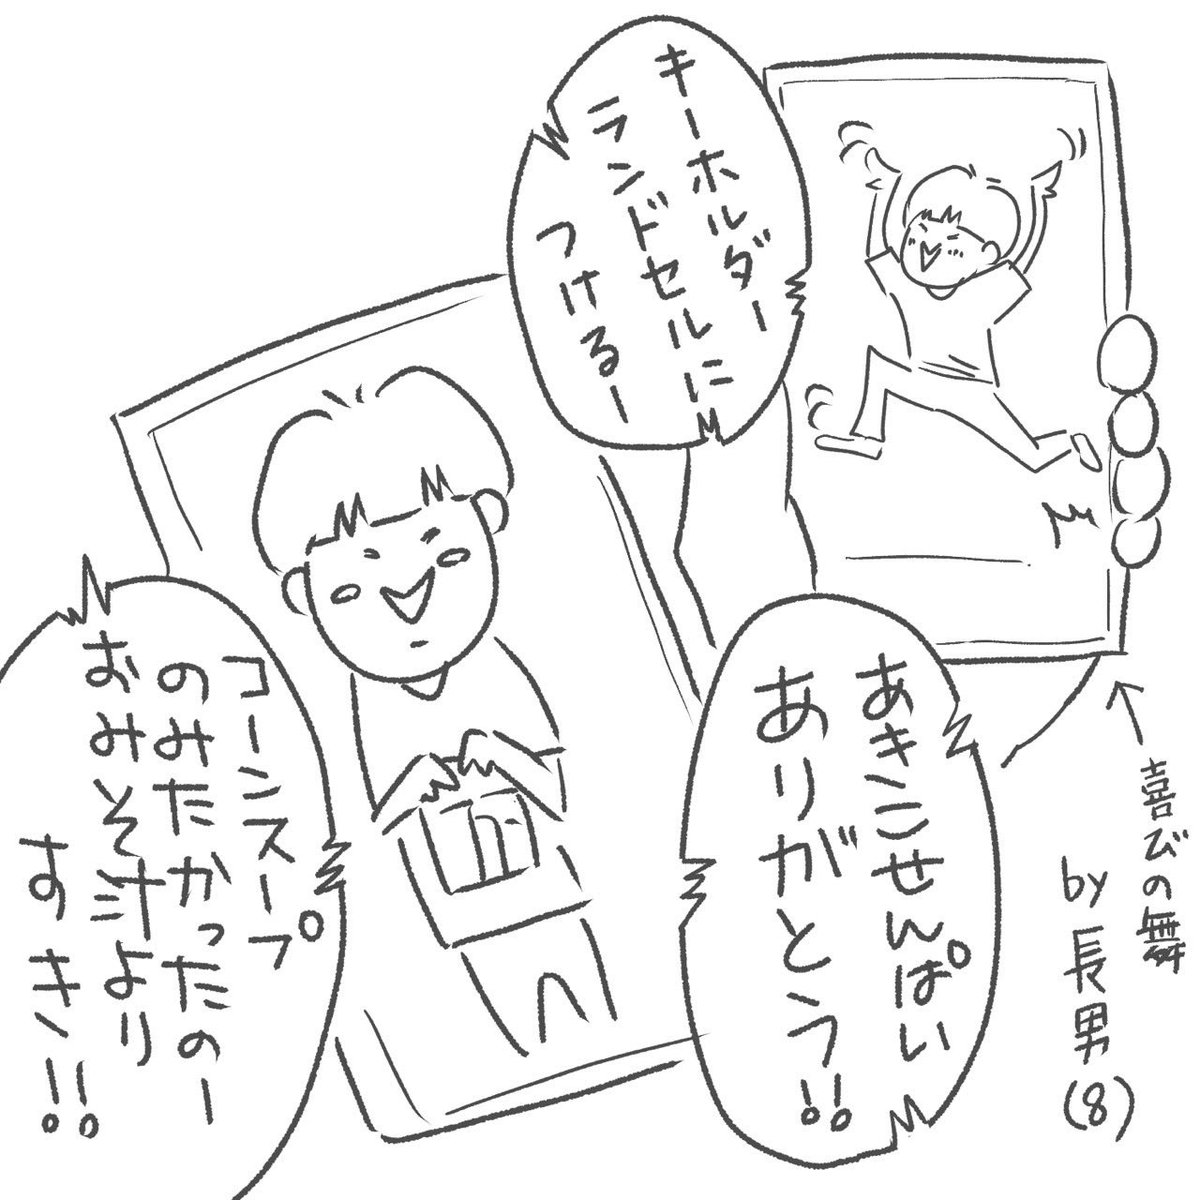 キーホルダー
ランドセルに
つけるー
あきこせんぱい
ありがとう!!
コーンスープ
のみたかったのー
おみそ汁より
すき、!!
喜びの舞
by 長男(8)